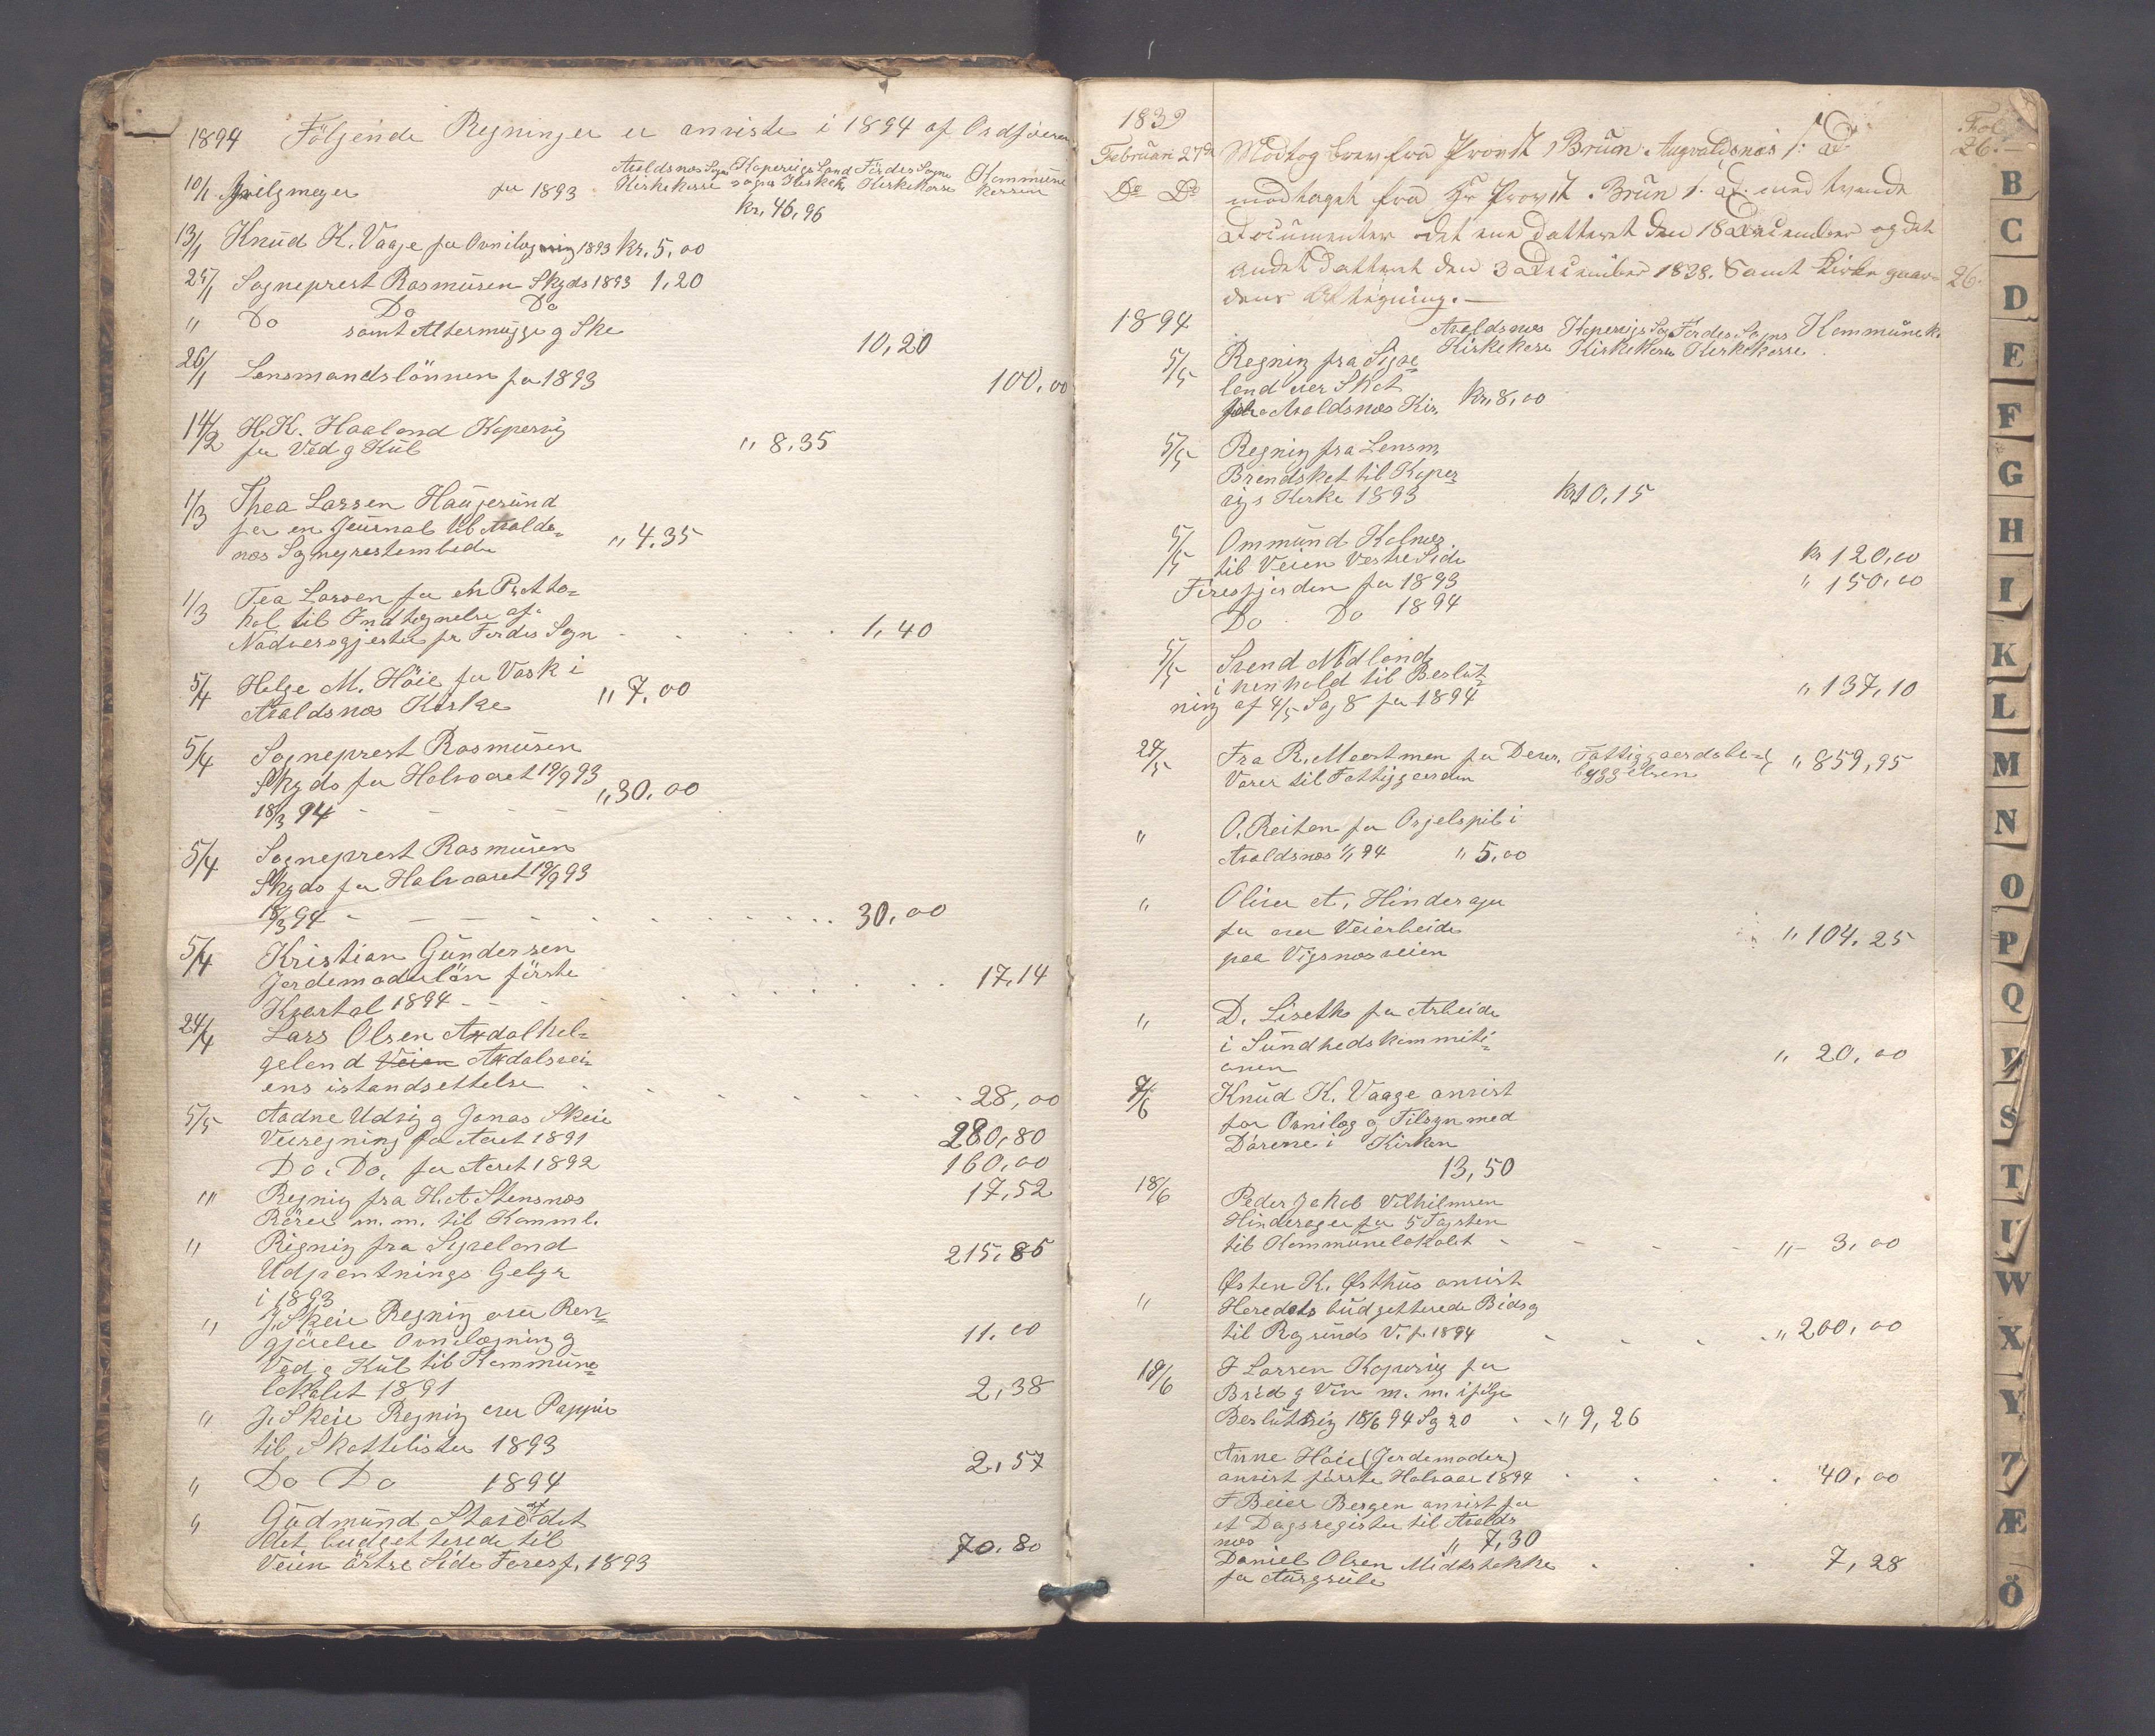 1894 Följende Regninger er anviste i 1894 af Ordföreren
Avaldsnes Sogns Kopervigs Land Fördes Sogns Kommune
10/1 for 1893 Kirkekasse sogns Kirkek Kirkekasse kassen
kr. 46,96
13/1 Knud K. Vaage for Ovnilægning 1893 kr. 5,00
24/1 Sogneprest Rasmusen Skyds 1893 1,20
" Do Do Do
samt Altermugge g Ske 10,20
26/1 Lensmandslönnen for 1893 100,00
14/2 H. K. Haaland Kopervig
for Ved g Kul " 8,35
1/3 Thea Larsen Haugesund
for en Journal til Avalds-
nes Sogneprestembede " 4,35
1/3 Tea Larsen for en Protto-
kol til Indtegnelse af
Nadversgjester for Fördes Sogn 1,40
5/4 Helge M. Höie for Vask i
Avaldsnes Kirke " 7,00
5/4 Sogneprest Rasmusen
Skyds for Halvaaret 19/9 93
18/3 94 " 30,00
5/4 Sogneprest Rasmusen
Skyds for Halvaaret 19/9 93
18/3 94 30,00
5/4 Kristian Gundersen
Jordemoderlön förste
Kvartal 1894 17,14
24/4 Lars Olsen Axdal hel-
geland Veien Axdalsvei-
ens istandsettelse 28,00
5/5 Aadne Udvig g Jonas Skeie
Veiregning for Aaret 1891 280,80
Do. Do. for Aaret 1892 160,00
" Regnig fra H. A. Stensnes 17,52
Rörer m. m. til Komml.
" Rignig fra Sigveland 215,85
Udpantnings Gebyr
i 1893
" J. Skeie Regnig over Ren-
gjörelse Ovnilægning g 11,00
Ved g Kul til Kommune
lokalet 1891 2,38
" J. Skeie Regnig over Pappir
til Skattelister 1893
" Do Do 1894 2,57
" Gudmund Stave af det
det budgetterede til
Veien östre Side Foresf. 1893 70,80
1839
Fol
26.
Februari 27de Modtog brev fra Provst Brun Augvaldsnæs
Do Do modtaget fra Hr Provst Brun med tvende
Documenter det ene datteret den 18 December og det
andet dattert den 3 December 1838. Samt Kirkegaar- 26.
dens
1894
Avaldsnes Kopervigs Sogn Fördes Sogns Kommunek.
Kirkekasse Kirkekasse Kirkekasse
5/5 Regnig fra Sigve-
land over Skat
Avaldsnes Kir. kr. 8,00
5/5 Regnig fra Lensm.
Brandskat til Koper-
vigs Kirke 1893 kr 10,15
5/5 Ommund Kolnes
til Veien Vestre Side kr 120,00
Föresfjorden for 1893 " 150,00
Do Do 1894
5/5 Svend Midland
i henhold til Beslut-
ning af 4/5 Sag 8 for 1894 " 137,10
24/5 Fra R. Meestmen for Dever. Fattiggaardsbe-
Varer til Fattiggaarden byggelsen " 859,95
" O. Reiton for Orgelspil i
Avaldsnes 1/1 94 " 5,00
" Oliver A. Hinderager
for over Veiarbeide
paa Vigsnesveien " 104,25
" D. Liseth for Arbeide
i Sundhedskommiti-
onen " 20,00
7/6 Knud K. Vaage anvist
for Ovnilæg g Tilsyn med
Dörene i Kirken
13,50
18/6 Peder Jakob Vilhilmsen
Hinderager for 5 Tagsten
til Kommunelokalet " 3,00
" Østen K. Østhus anvist
Heredets budgetterede Bidrag
til Rygrunds V. f. 1894 " 200,00
18/6 J Larsen Kopervig for
Bröd g Vin m. m. ifölge
Beslutning 18/6 94 Sg 20 " 9,26
Anne Höie (Jordemoder)
anvist förste Halvaar 1894 40,00
F Beier Bergen anvist for
et Dagsregister til Avalds
nes " 7,30
Daniel Olsen Midtstokke 7,28
for Aurgrule
B
C
D
E
F
G
H
I
K
L
M
N
O
P
Q
R
S
T
U
W
X
Y
Z
Æ
Ö